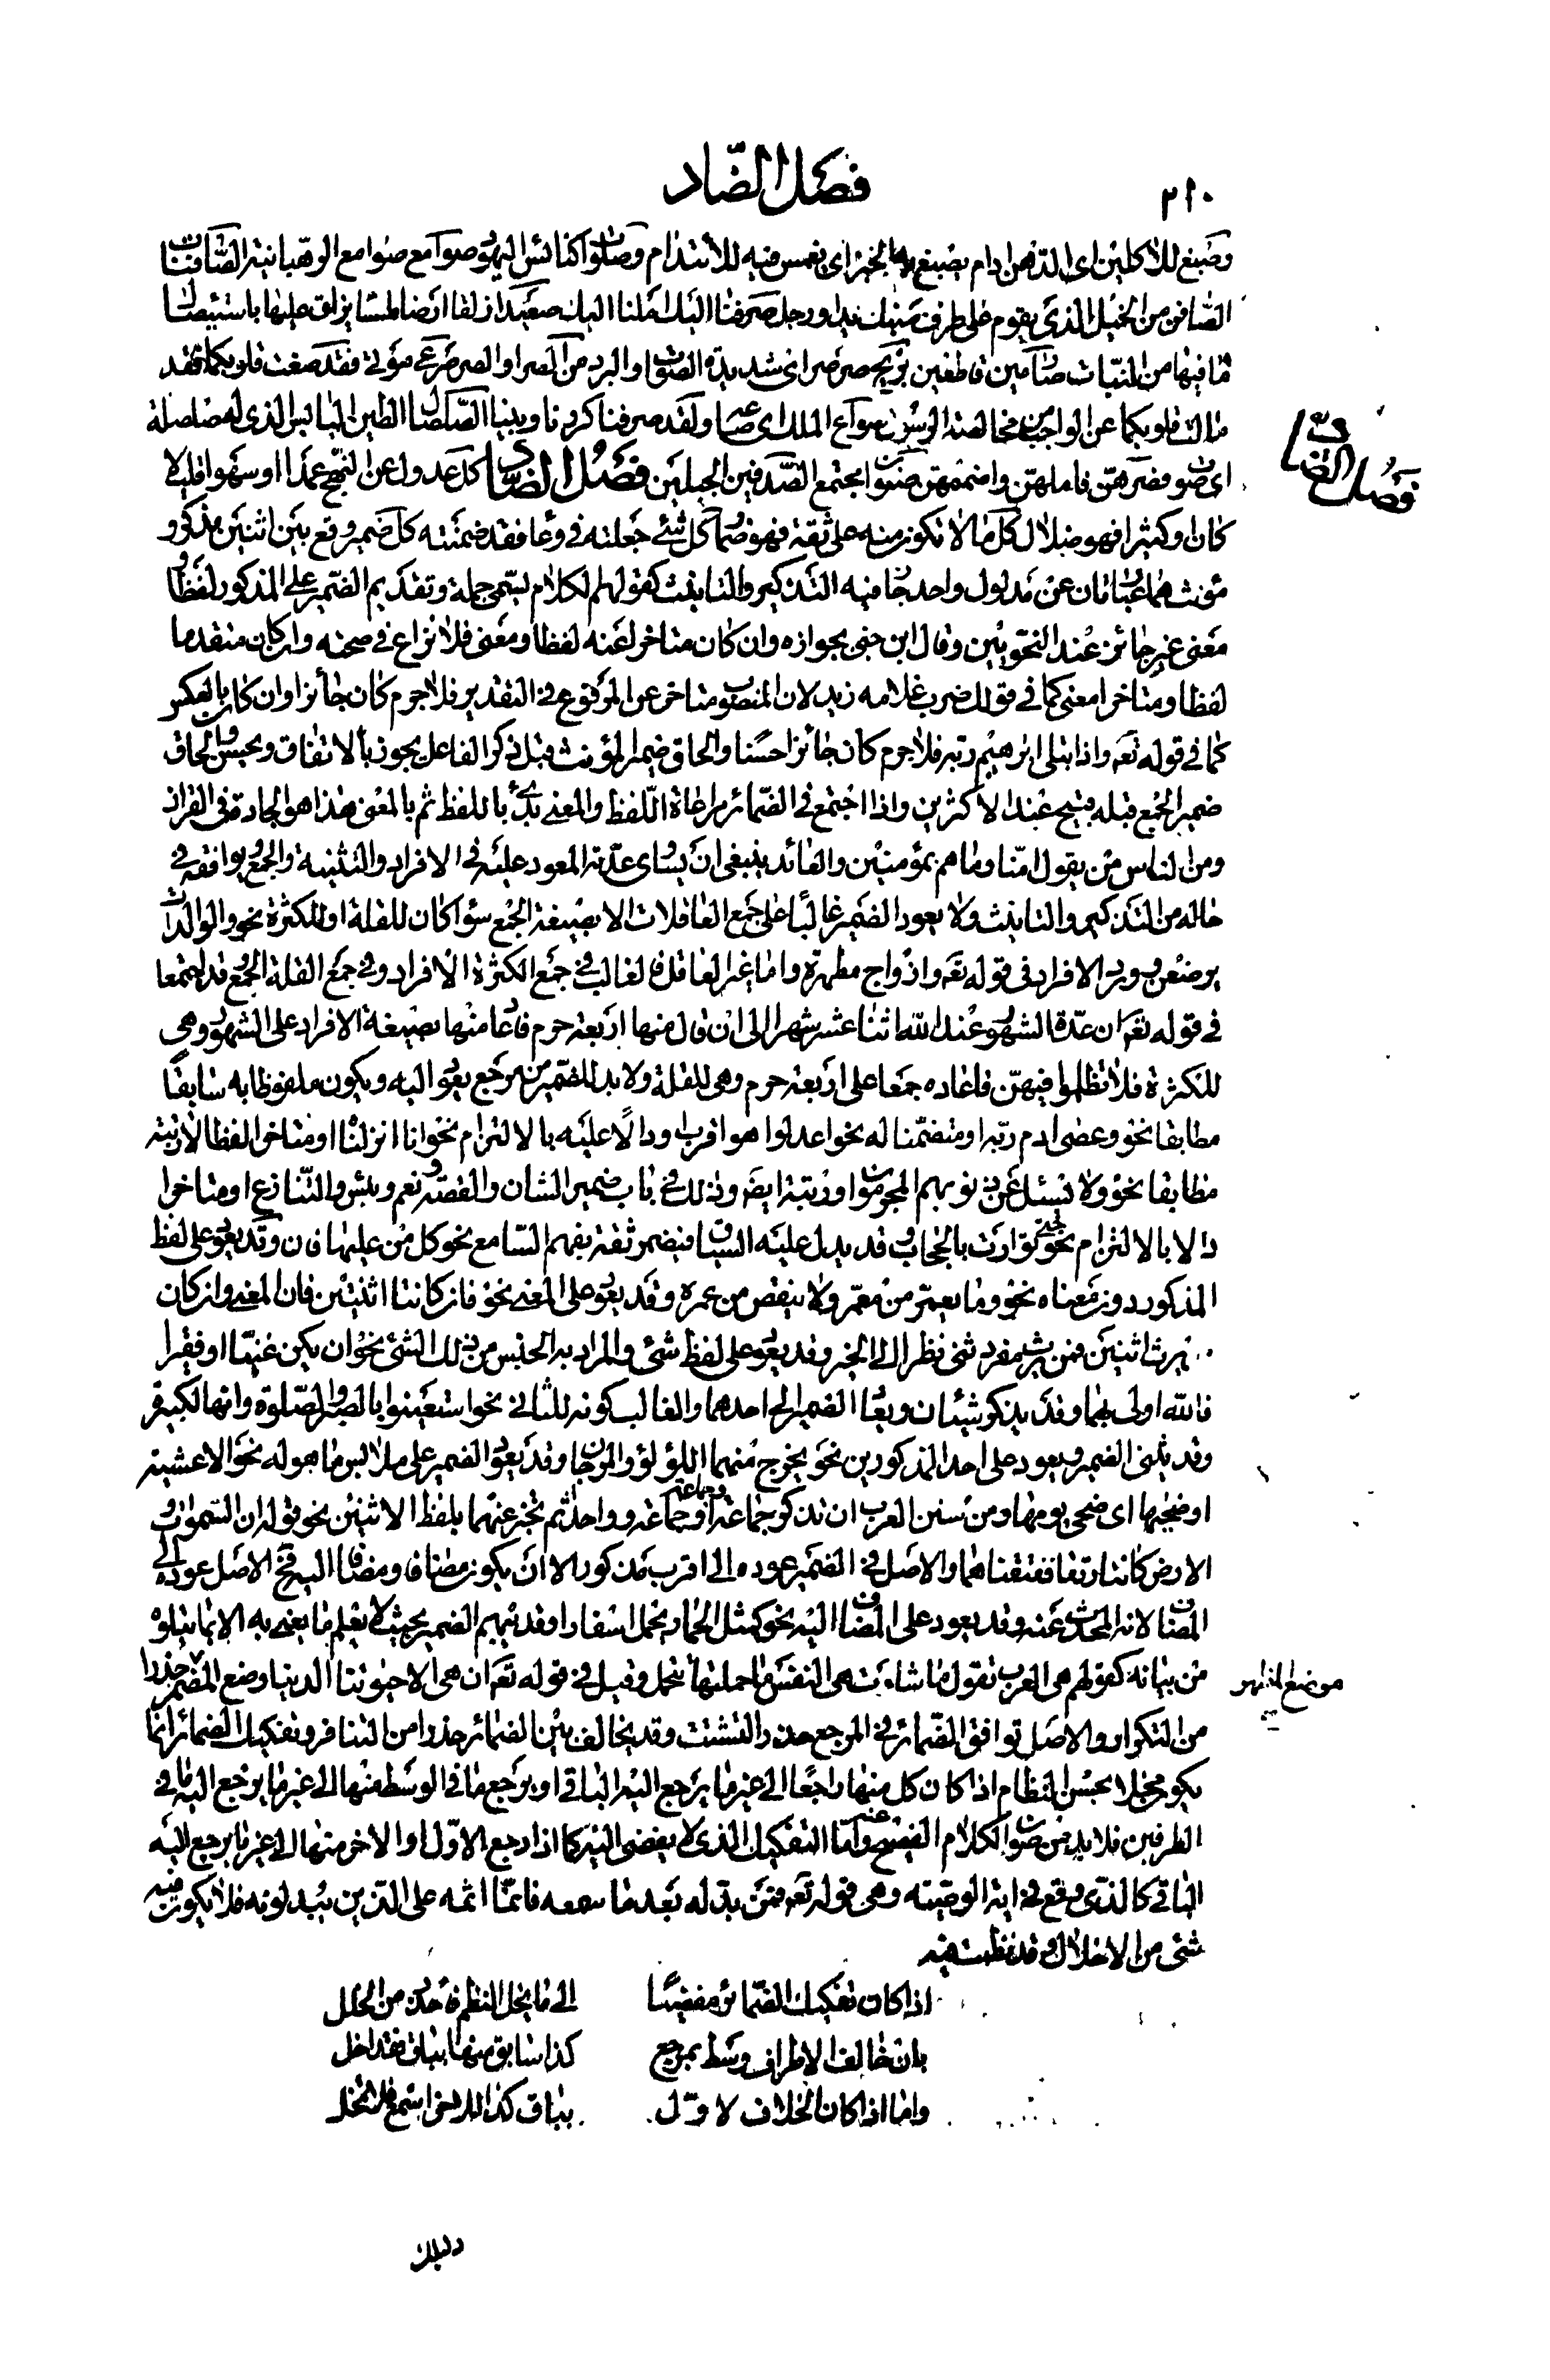 ٢١٠
فصل الضاد
وصبغ للآكلين اى الدهن ادام يصبغ به الخبز اى يغمس فيه للائتدام وصلوات كنائس اليهود صوامع صوامع الرهبانية الصافنات
الصافن من الخيل الذى يقوم على طرف سنبك يد او رجل صرفنا اليك املنا اليك صعيدا زلقا ارضا ملسا يزلق عليها باستئصال
ما فيها من النبات صارمين قاطعين بريح صرصر اى شديدة الصوت او البرد من الصر او الصر صرعى موتى فقد صغت قلوبكما فقد
مالت قلوبكما عن الواجب من مخالصة الرسول صواع الملك اى صاع ولقد صرفنا كررنا وبينا الصلصال الطين اليابس الذى له صلصلة
اى صوت فصرهن فاملهن واضممهن صنوان مجتمع الصدفين الجبلين فصل الضاد كل عدول عن النهج عمدا او سهوا قليلا
كان او كثيرا فهو ضلال كل ما لا تكون منه على ثقة فهو ضمار كل شئ جعلته فى وعاء فقد ضمنته كل ضمير وقع بين اثنين مذكر و
مؤنث هما عبارتان عن مدلول واحد جاز فيه التذكير والتانيث كقولهم الكلام يسمى جملة وتقديم الضمير على المذكور لفظا و
معنى غير جائز عند النحويين وقال ابن جنى بجوازه وان كان متاخرا عنه لفظا ومعنى فلا نزاع فى صحته وان كان متقدما
لفظا ومتاخرا معنى كما فى قولك ضرب غلامه زيد لان المنصوب متاخر عن المرفوع فى التقدير فلا جرم كان جائزا وان كان بالعكس
كما فى قوله تعه واذ ابتلى ابرهيم ربه فلا جرم كان جائزا حسنا والحاق ضمير المؤنث قبل ذكر الفاعل يجوز بالاتفاق ويحسن والحاق
ضمير الجمع قبله قبيح عند الاكثرين واذا اجتمع فى الضمائر مراعاة اللفظ والمعنى بدئ باللفظ ثم بالمعنى هذا هو الجادة فى القران
ومن الناس من يقول امنا وما هم بمؤمنين والعائد ينبغى ان يساوى عدته المعود عليه فى الافراد والتثنية والجمع ويوافقه فى
حاله من التذكير والتانيث ولا يعود الضمير غالبا على جمع العاقلات الا بصيغة الجمع سواء كان للقلة او للكثرة نحو والوالدات
يرضعن وورد الافراد فى قوله تعه وازواج مطهرة واما غير العاقل فالغالب فى جمع الكثرة الافراد وفى جمع القلة الجمع وقد اجتمعا
فى قوله تعه ان عدة الشهور عند الله اثنا عشر شهرا الى ان قال منها اربعة حرم فاعاد منها بصيغة الافراد على الشهور وهى
للكثرة فلا تظلموا فيهن فاعاده جمعا على اربعة حرم وهى للقلة ولا بد للضمير من مرجع يعود اليه ويكون ملفوظا به سابقا
مطابقا نحو وعصى ادم ربه او متضمنا له نحو اعدلوا هو اقرب او دالا عليه بالالتزام نحو انا انزلناه او متاخرا لفظا لا رتبة
مطابقا نحو ولا يسئل عن ذنوبهم المجرمون او رتبة ايض وذلك فى باب ضمير الشان والقصة ونعم وبئس والتنازع او متاخرا
دالا بالالتزام نحو حتى توارت بالحجاب وقد يدل عليه السياق فيضمر ثقة بفهم السامع نحو كل من عليها فان وقد يعود على لفظ
المذكور دون معناه نحو وما يعمر من معمر ولا ينقص من عمره وقد يعود على المعنى نحو فان كانتا اثنتين فان المعنى وان كان
من يرث اثنين فمن يرث مفرد ثنى نظرا الى الخبر وقد يعود على لفظ شئ والمراد به الجنس من ذلك الشئ نحو ان يكن غنيا او فقيرا
فالله اولى بهما وقد يذكر شيئان ويعاد الضمير الى احدهما والغالب كونه للثانى نحو استعينوا بالصبر والصلوة وانها لكبيرة
وقد يثنى الضمير ويعود على احد المذكورين نحو يخرج منهما اللؤلؤ والمرجان وقد يعود الضمير على ملابس ما هو له نحو الا عشية
او ضحيها اى ضحى يومها ومن سنن العرب ان تذكر جماعة وجماعة او جماعة وواحد ثم تخبر عنهما بلفظ الاثنين نحو قوله ان السموات و
الارض كانتا رتقا ففتقناهما والاصل فى الضمير عوده الى اقرب مذكور الا ان يكون مضافا ومضافا اليه فح الاصل عوده الى
المضاف لانه المحدث عنه وقد يعود على المضاف اليه نحو كمثل الحمار يحمل اسفارا وقد يبهم الضمير بحيث لا يعلم ما يعنى به الا بما يتلوه
من بيانه كقولهم هى العرب تقول ما شاءت هى النفس ما حملتها تتحمل وقيل فى قوله تعه ان هى الا حيوتنا الدنيا وضع المضمر حذرا
من التكرار والاصل توافق الضمائر فى المرجع حذر التشتت وقد يخالف بين الضمائر حذرا من التنافر وتفكيك الضمائر انما
يكون مخلا بحسن النظام اذا كان كل منها راجعا الى غير ما يرجع اليه الباقى او يرجع ما فى الوسط منها الى غير ما يرجع اليه ما فى
الطرفين فلا بد من صون الكلام الفصيح عنه واما التفكيك الذى لا يفضى اليه كما اذا رجع الاول او الاخر منها الى غير ما يرجع اليه
الباقى كالذى وقع فى اية الوصية وهى قوله تعه فمن بدله بعد ما سمعه فانما اثمه على الذين يبدلونه فلا يكون فيه
شئ من الاخلال وقد نظمت فيه
اذا كان تفكيك الضمائر مفضيا الى ما يخل النظم فاحذر من الخلل
بان خالف الاطراف وسط بمرجع كذا سابق منها بباق فقد اخل
واما اذا كان الخلاف لاول بباق كذا للاخر اسمع فلا تخل
فصل الضاد
موضع المظهر